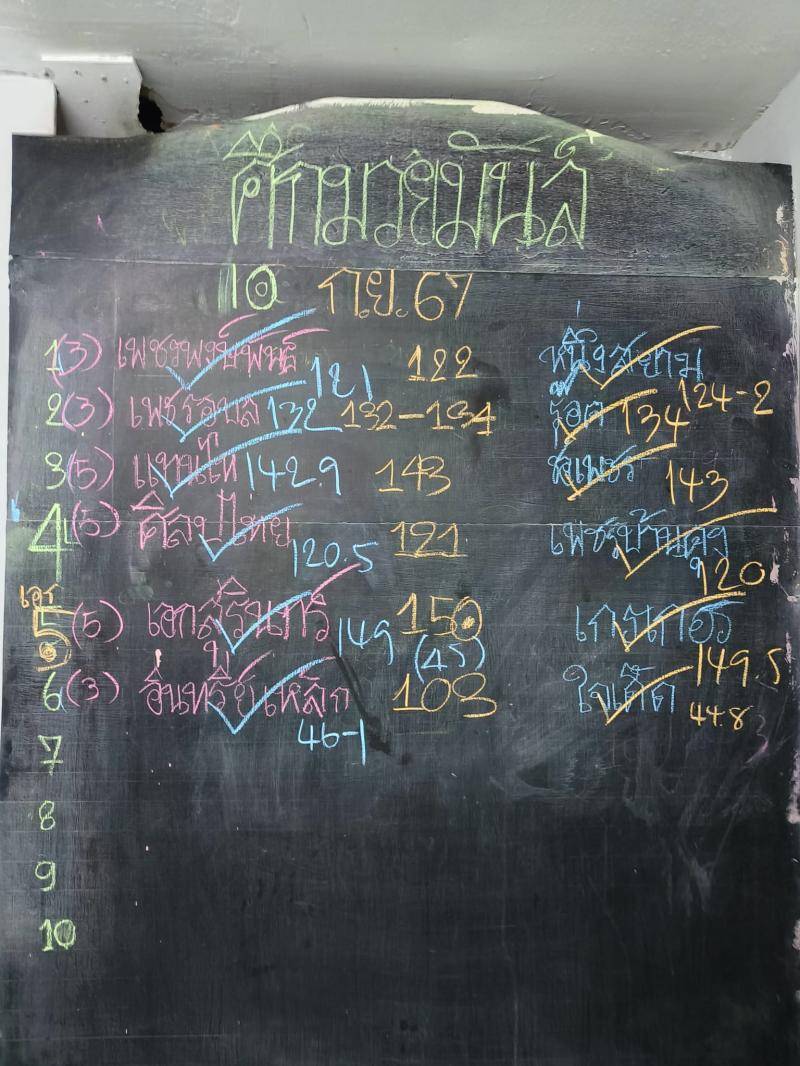 ศึกมวยมันส์
10 ก.ย. 67
1(3) เพชรพงษ์พันธ์ 121 122 หนึ่งสยาม 124-2
2(3) เพชรอุบล 132 132-134 ร็อค 134
3(5) แทนไท 142.9 143 สิงเพชร 143
4(5) ศิลป์ไทย 120.5 121 เพชรบ้านคง 120
เอก
5(5) เอกสุรินทร์ 149 150 เกรเกอร์ 149.5
(45)
6(3) อินทรีย์เหล็ก 46-1 103 ใจเด็ด 44.8
7
8
9
10